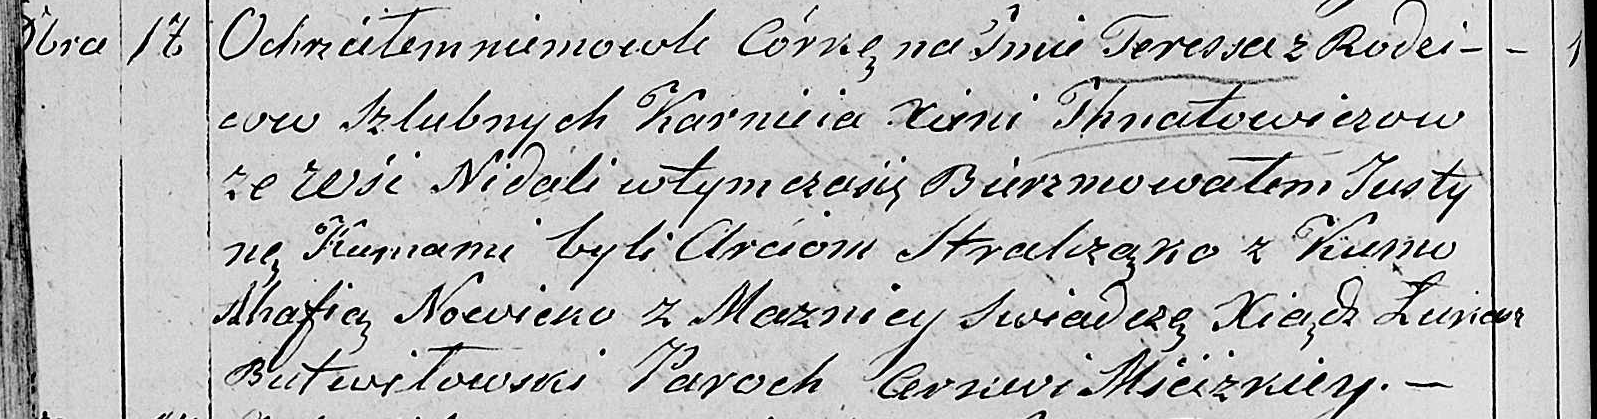 bra 17 Ochrciłem niemowle Córkę na Imie Teressa z Rodzi- -
cow szlubnych Karnieia Xieni Ihnatowiczow
ze Wśi Nidali w tym czasię Bierzmowałem Justy
nę Kumami byli Arciom Stralczązko z Kumo
Ahafią Nowicko z Maznicy swiadczę Xiądz Łukasz
Butwiłowski Paroch Cerkwi Mścizkiey. —